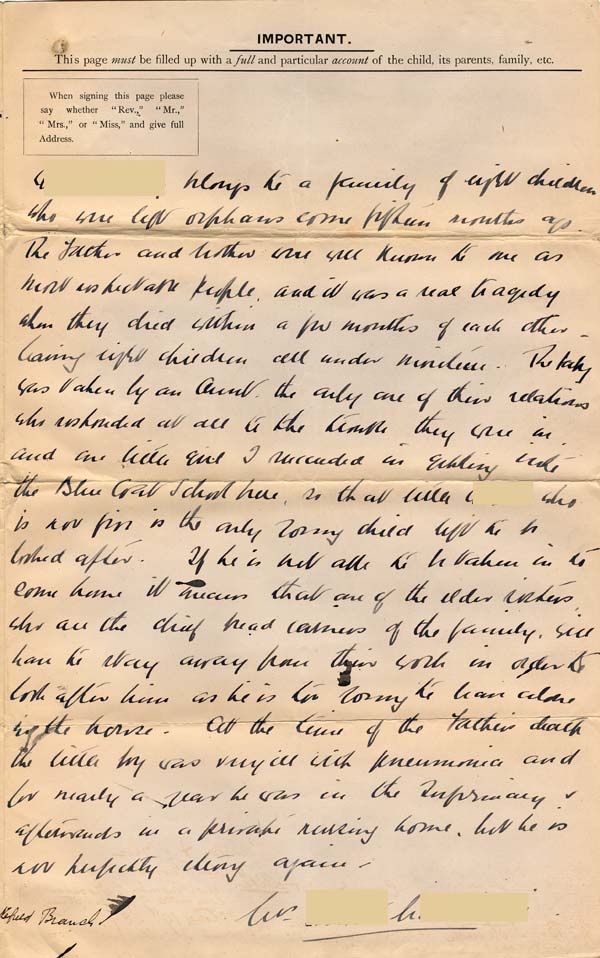 IMPORTANT.
This page must be filled up with a full and particular account of the child, its parents, family, etc.
When signing this page please
say whether "Rev.," "Mr.,"
"Mrs.," or "Miss," and give full
Address.
belongs to a family of eight children
who were left orphans some fifteen months ago.
The Father and Mother were well known to me as
most respectable people, and it was a real tragedy
when they died within a few months of each other -
leaving eight children all under nineteen. The baby
was taken by an Aunt. the only one of their relations
who responded at all to the trouble they were in,
and one little girl I succeeded in getting into
the Blue Coat School here, so that little who
is now five is the only young child left to be
looked after. If he is not able to be taken in to
some home it means that one of the elder sisters,
who are the chief bread earners of the family, will
have to stay away from their work in order to
look after him as he is too young to leave alone
in the house. At the time of the Father's death
the little boy was very ill with pneumonia and
for nearly a year he was in the Infirmary &
afterwards in a private nursing home, but he is
now perfectly strong again -
Branch